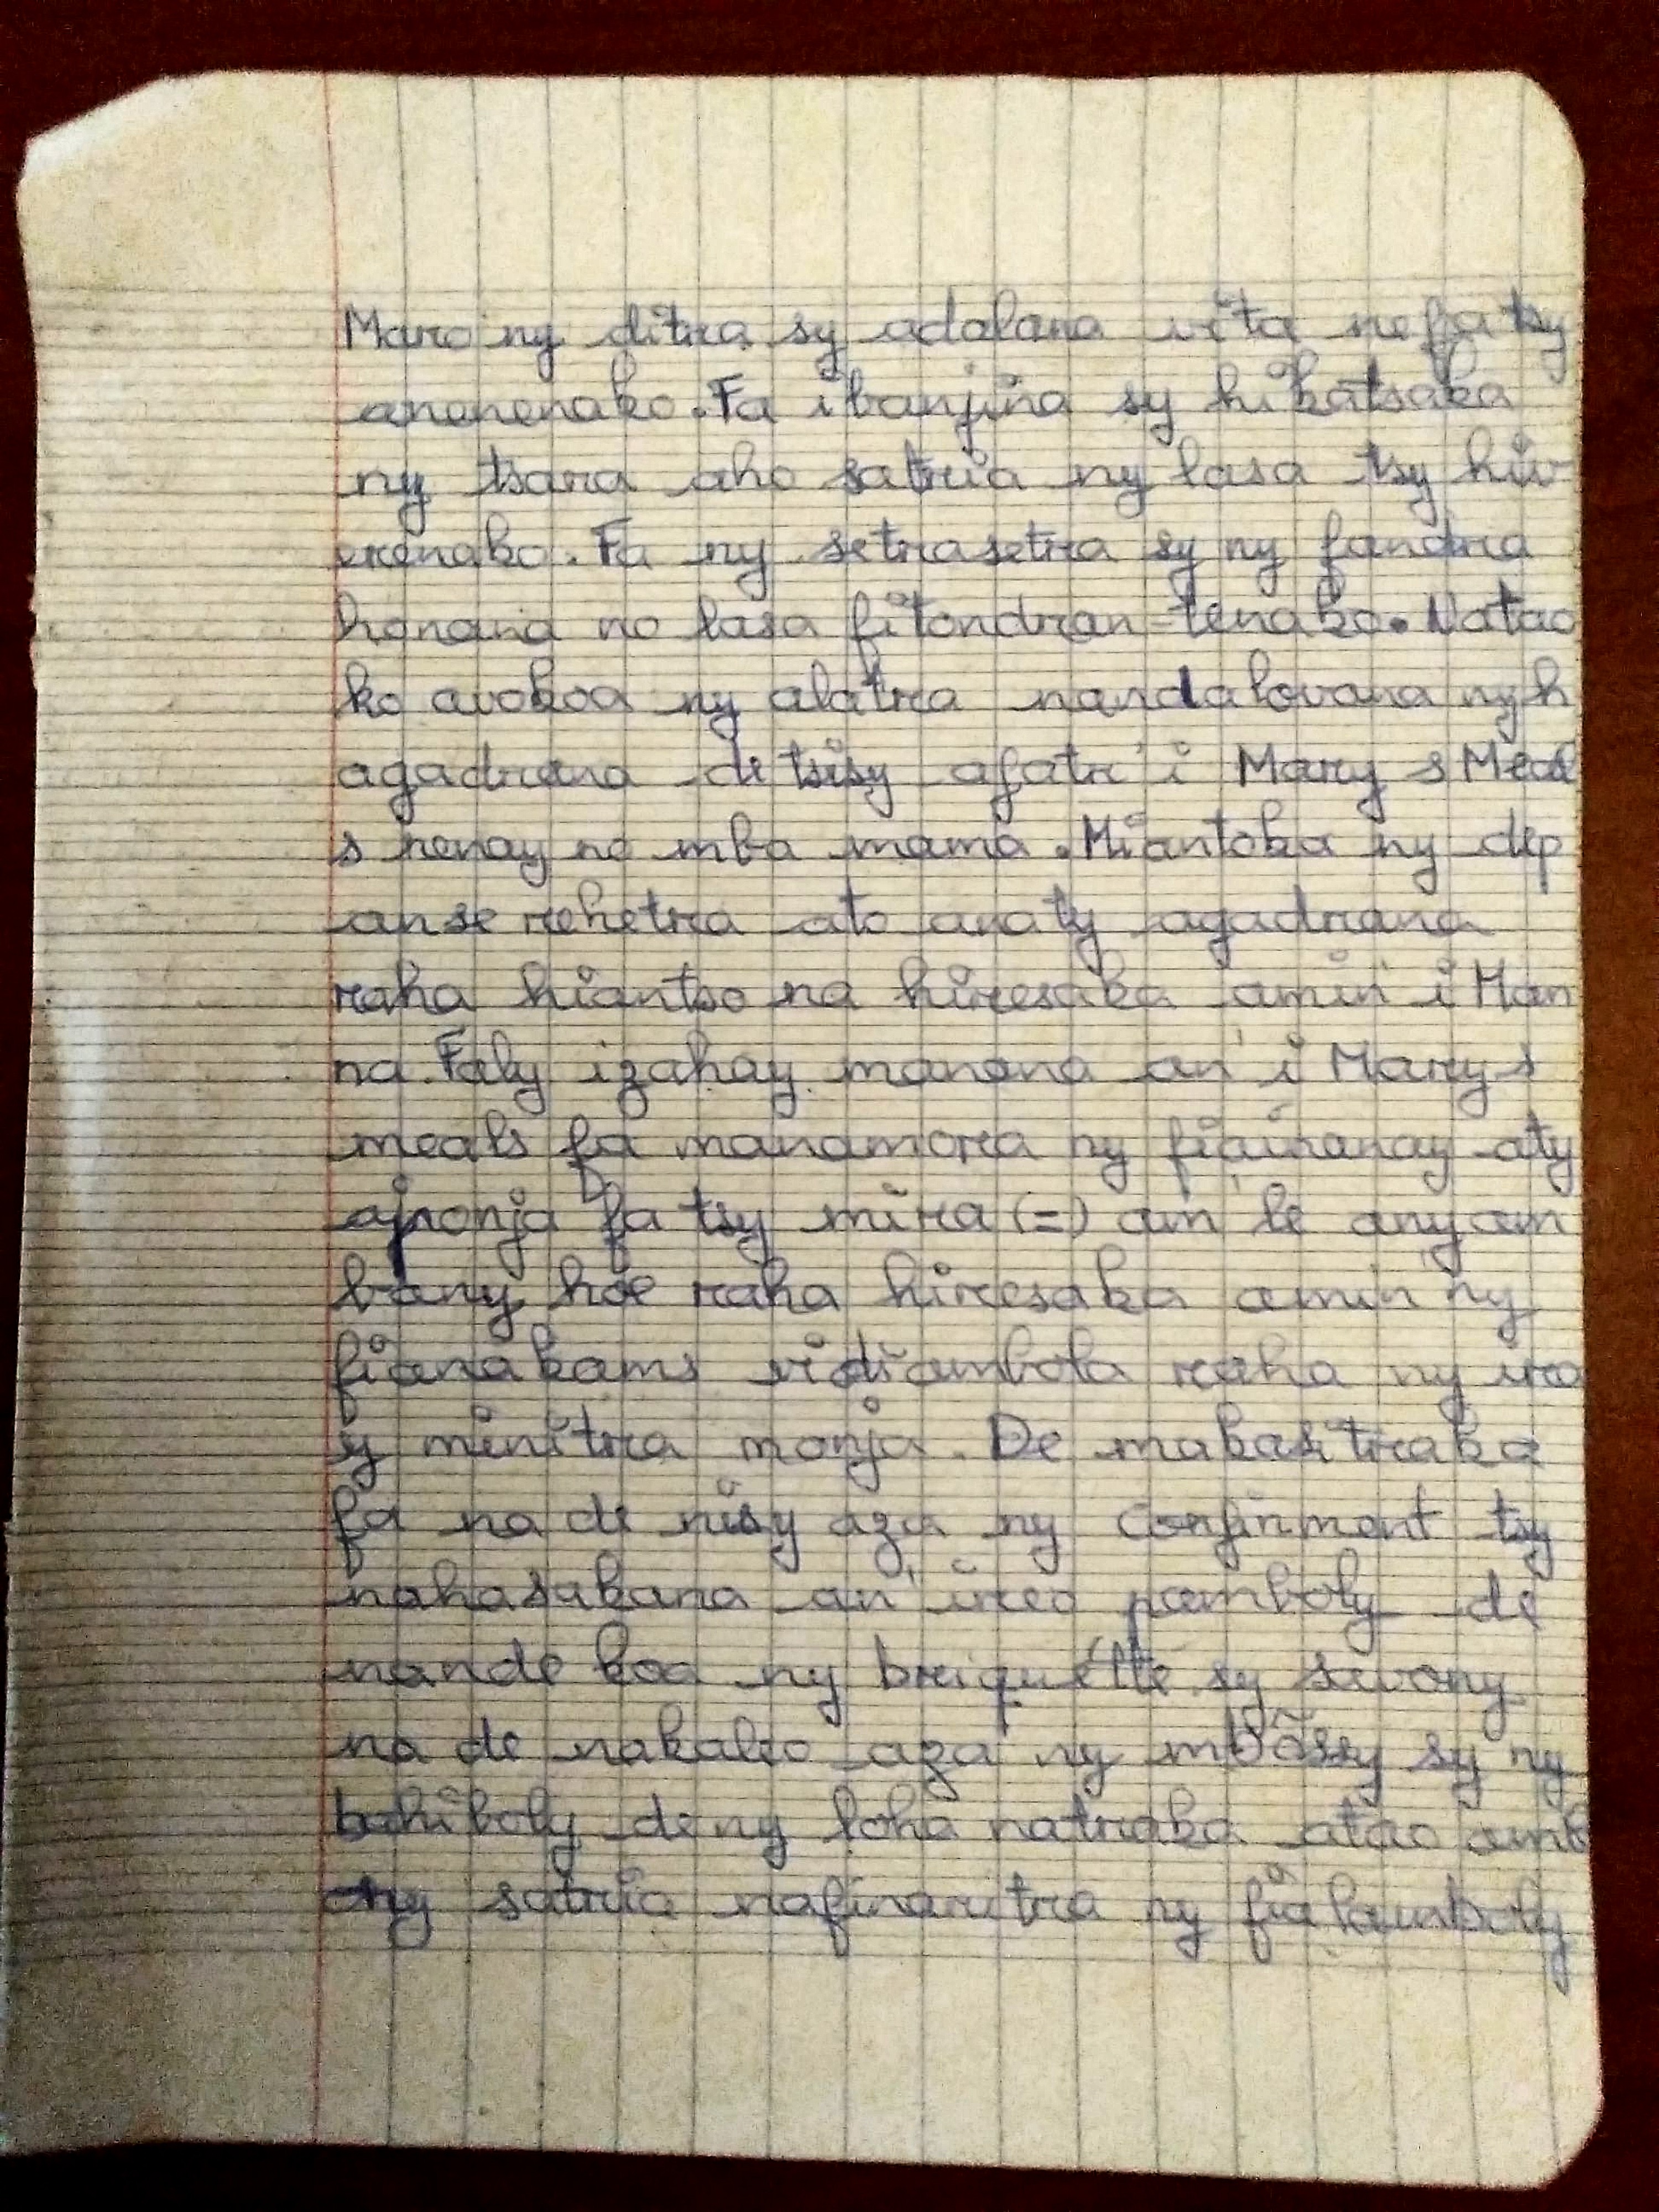 Maro ny ditra sy adalana vita nefa tsy
anenenako. Fa ibanjina sy hikatsaka
ny tsara aho satria ny lasa tsy hiv
erenako. Fa ny setrasetra sy ny fandra
honana no lasa fitondran-tenako. Natao
ko avokoa ny alatra nandalovana nyh
agadrana de tsisy afatr'i Mary s Meal
s renay no mba mama. Miantoka ny dep
anse rehetra ato anaty agadrana
raha hiantso na hiresaka amin'i Man
na. Faly izahay manana an'i Mary s
meals fa manamora ny fiainanay aty
aponja fa tsy mira (=) an'le anyam
bany hoe raha hiresaka amin'ny
fianakams vidiambola raha ny ira
y minitra monja. De makasitraka
fa na de nisy aza ny Confinment tsy
nahasakana an'ireo pamboly de
nande koa ny briquétte sy savony
na de nakaleo aza ny mbôssy sy ny
bahiboly de ny loha natraka atao amb
ony satria nafinaritra ny fialamboly